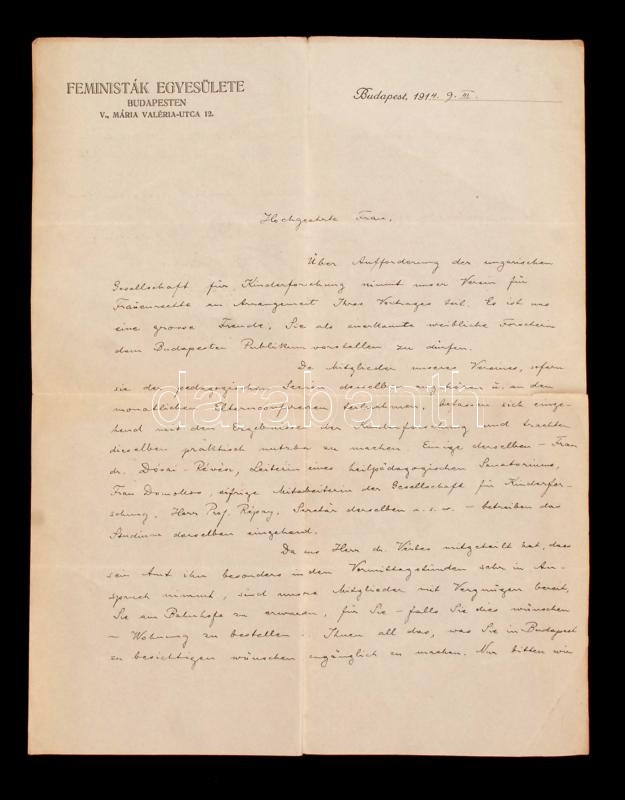 FEMINISTÁK EGYESÜLETE
BUDAPESTEN
V., MÁRIA VALÉRIA-UTCA 12.
Budapest, 1914. 9. III.
Hochgeehrte Frau,
Über Aufforderung der ungarischen
Gesellschaft für Kinderforschung nimmt unser Verein für
Frauenrechte am Arrangement Ihres Vortrages teil. Es ist uns
eine grosse Freude, Sie als anerkannte weibliche Forscherin
dem Budapester Publikum vorstellen zu dürfen.
Da Mitglieder unseres Vereines, sofern
sie der pedagogischen Section derselben angehören u. an den
monatlichen Elternconferenzen teilnehmen, befassen sich einge-
hend mit den Ergebnissen der Kinderforschung und trachten
dieselben praktisch nutzbar zu machen. Einige derselben – Frau
dr. Dósai-Révész, Leiterin eines heilpädagogischen Sanatoriums,
Frau Domokos, eifrige Mitarbeiterin der Gesellschaft für Kinderfor-
schung, Herr Prof. Répay, Secretär derselben u. s. w. – betreiben das
Studium derselben eingehend.
Da uns Herr dr. Vértes mitgeteilt hat, dass
sein Amt ihn besonders in den Vormittagsstunden sehr in An-
spruch nimmt, sind unsere Mitglieder mit Vergnügen bereit,
Sie am Bahnhofe zu erwarten, für Sie – falls Sie dies wünschen
– Wohnung zu bestellen Ihnen all das, was Sie in Budapest
zu besichtigen wünschen zugänglich zu machen. Nur bitten wir
darabanth